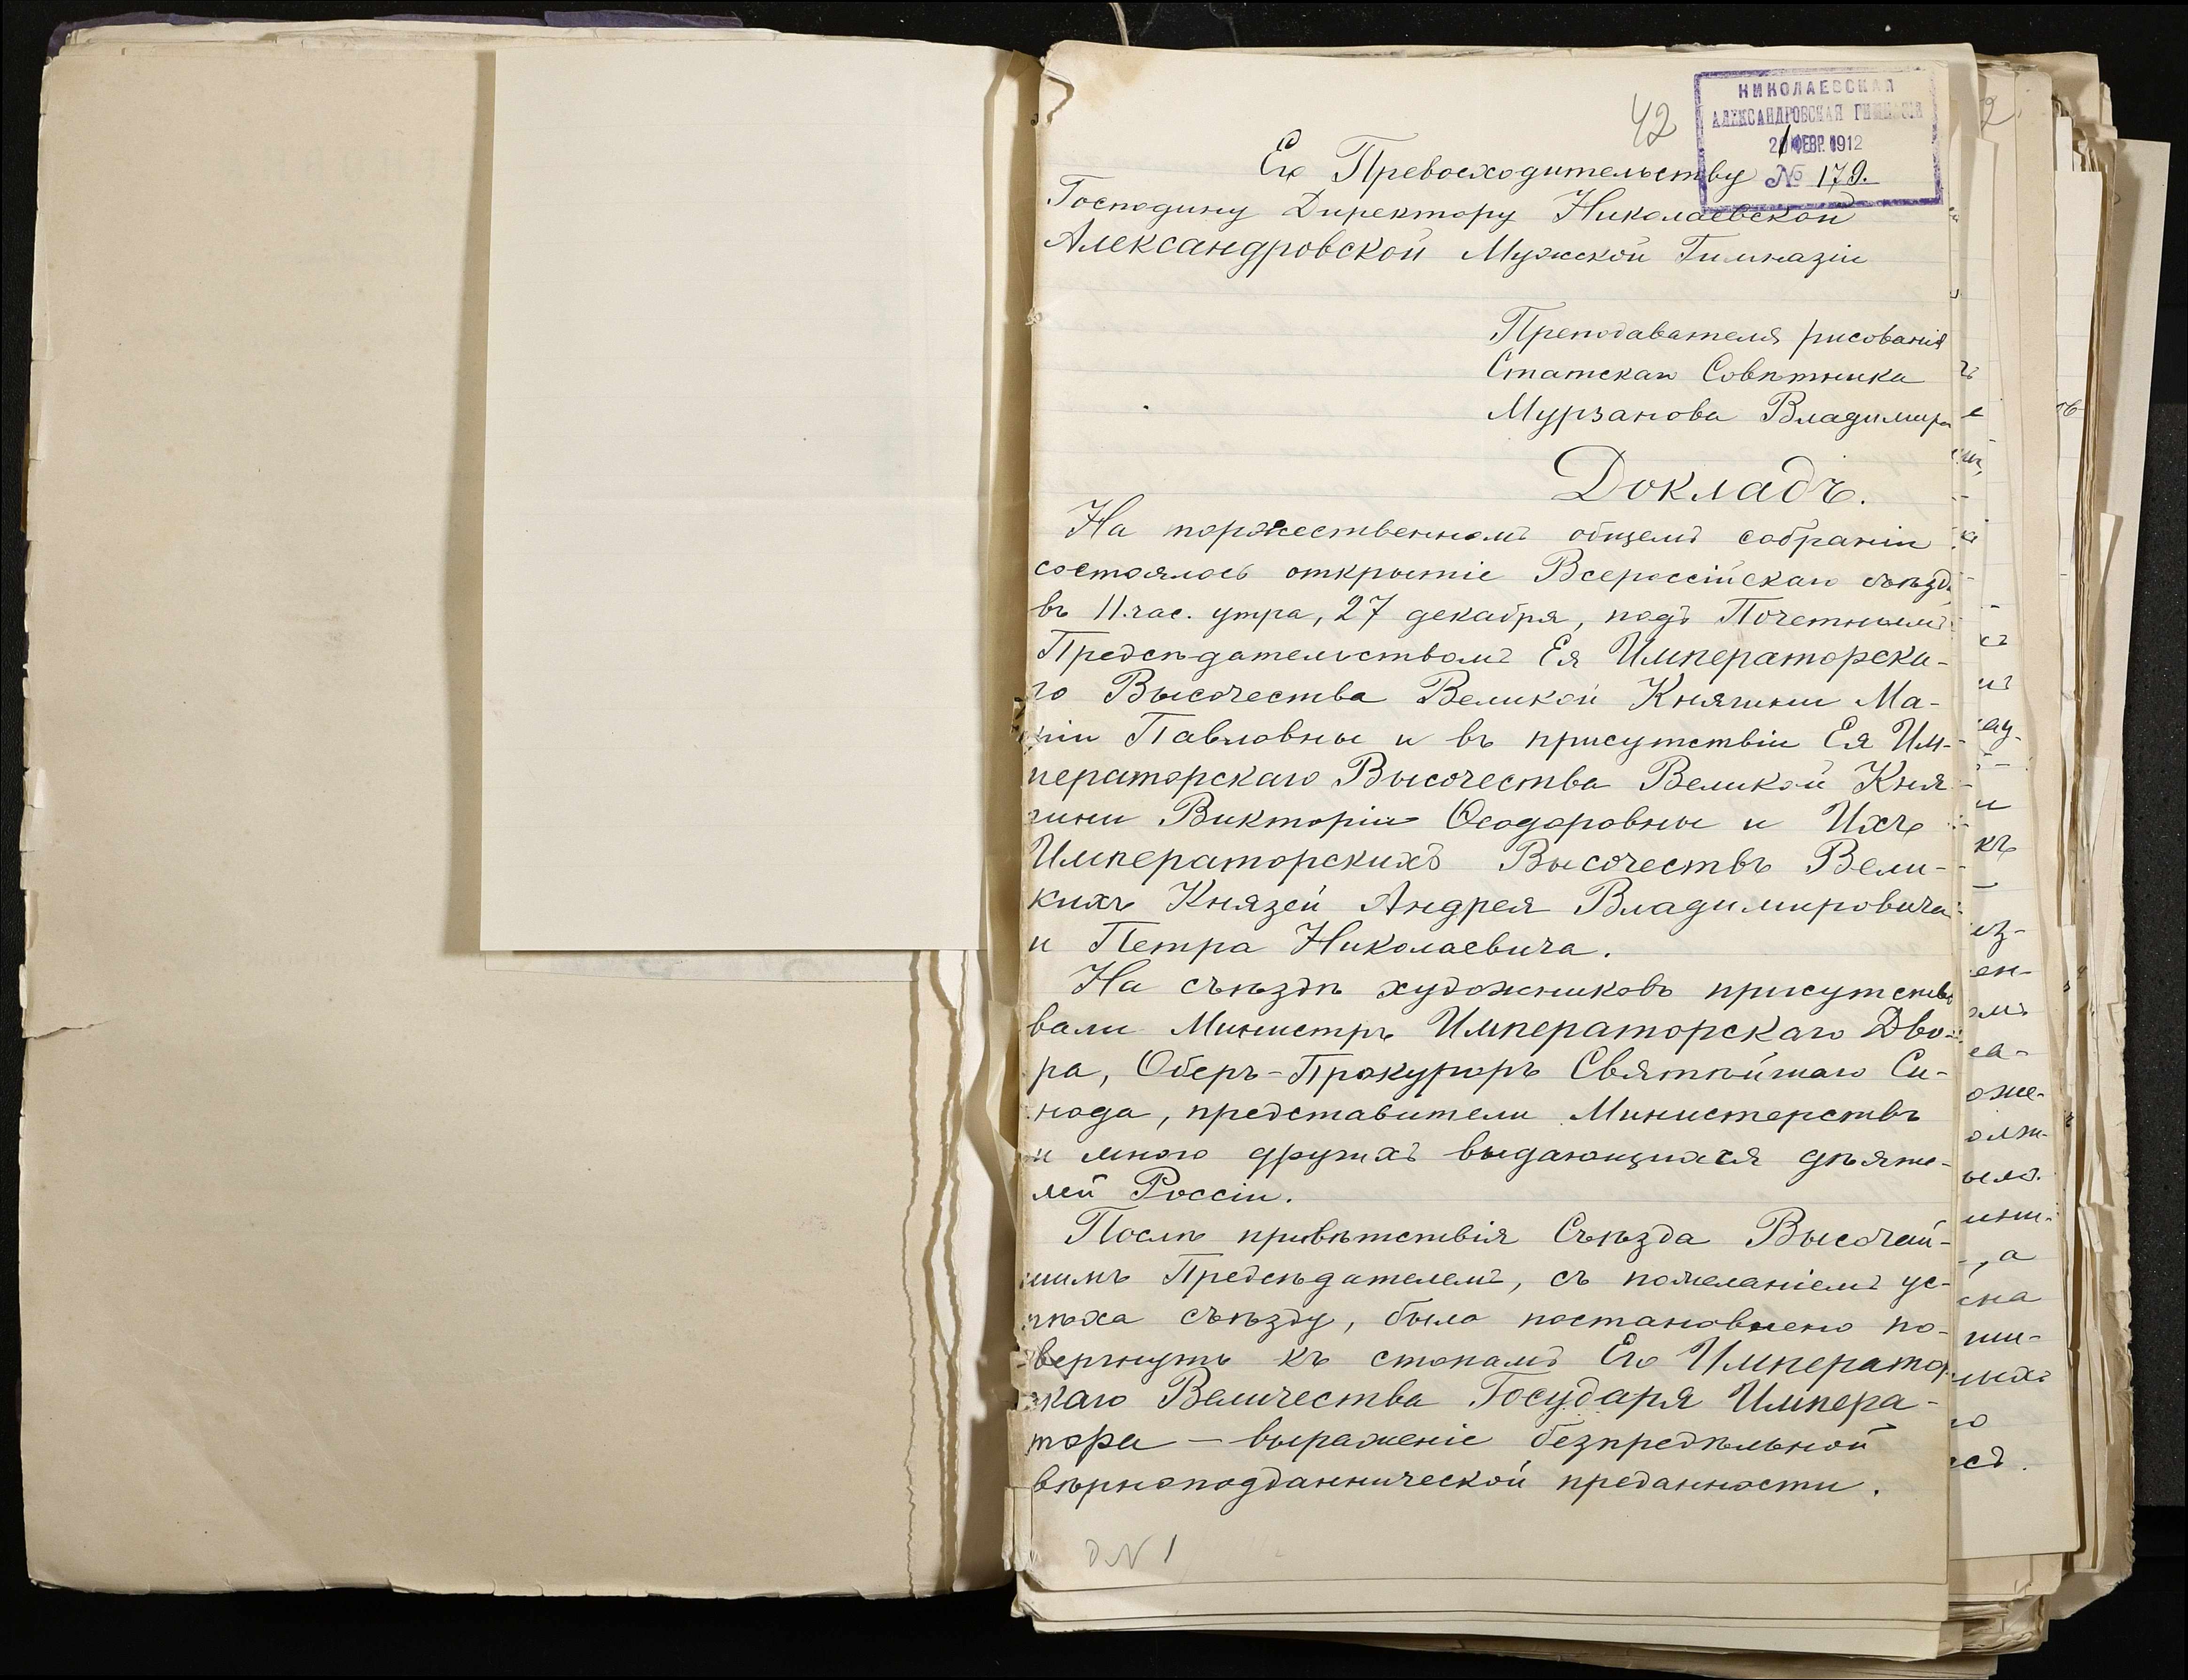 42
НИКОЛАЕВСКАЯ
АЛЕКСАНДРОВСКАЯ ГИМНАЗІЯ
21 ФЕВР. 1912
№ 179.
Его Превосходительству
Господину Директору Николаевской
Александровской Мужской Гимназіи
Преподавателя рисованія
Статскаго Совѣтника
Мурзанова Владимира
Докладъ.
На торжественномъ общемъ собраніи
состоялось открытіе Всероссійскаго съѣзда
въ 11 час. утра, 27 декабря, подъ Почетнымъ
Предсѣдательствомъ Ея Императорска-
го Высочества Великой Княгини Ма-
ріи Павловны и въ присутствіи Ея Им-
ператорскаго Высочества Великой Кня-
гини Викторіи Ѳеодоровны и Ихъ
Императорскихъ Высочествъ Вели-
кихъ Князей Андрея Владимировича
и Петра Николаевича.
На съѣздѣ художниковъ присутство
вали Министръ Императорскаго Дво-
ра, Оберъ-Прокуроръ Святѣйшаго Си-
нода, представители Министерствъ
и много другихъ выдающихся дѣяте-
лей Россіи.
Послѣ привѣтствія Съѣзда Высочай-
шимъ Предсѣдателемъ, съ пожеланіемъ ус-
пѣха съѣзду, было постановлено по-
вергнуть къ стопамъ Его Император
скаго Величества Государя Импера-
тора — выраженіе безпредѣльной
вѣрноподданнической преданности.